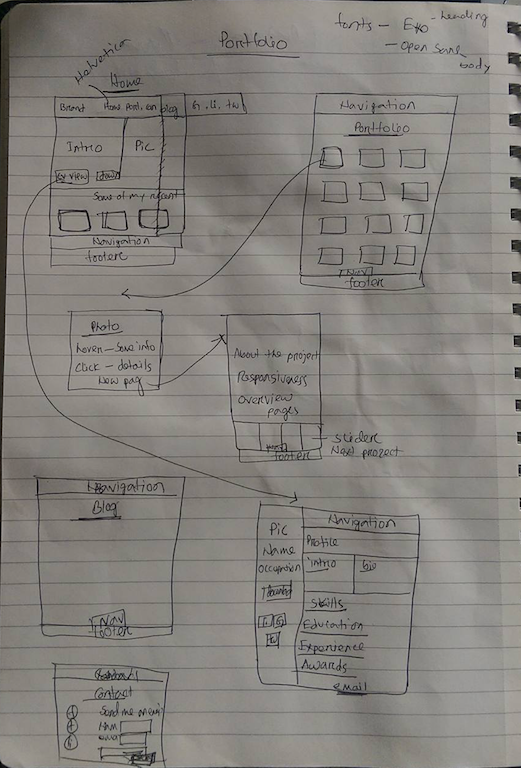 fonts - Exo - heading
- Open Sans
body
Portfolio
Helvetica
Home
Brand Home Port. con blog
Intro
Pic
cv view
down
Some of my recent
Navigation
footer
Navigation
Portfolio
Nav
footer
Photo
hover - Some info
Click - details
New pag
About the project
Responsiveness
Overview
pages
slider
Next project
footer
Navigation
Blog
Nav
footer
Pic
Name
Occupation
Navigation
Profile
intro
bio
Skills
Education
Experience
Awards
email
Contact
Send me